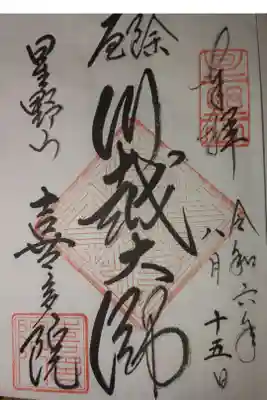 奉拝
令和六年
八月十五日
厄除
川越大師
星野山
喜多院